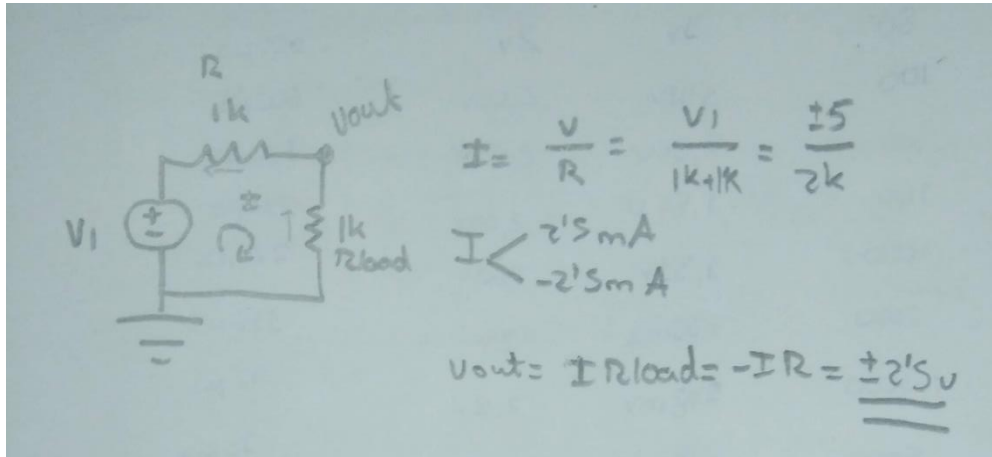 R
1k
Vout
V1
+
-
I
±
1k
Rload
I = V/R = V1/(1k+1k) = ±5/2k
I < 2'5mA
-2'5mA
Vout = I Rload = -IR = ±2'5v